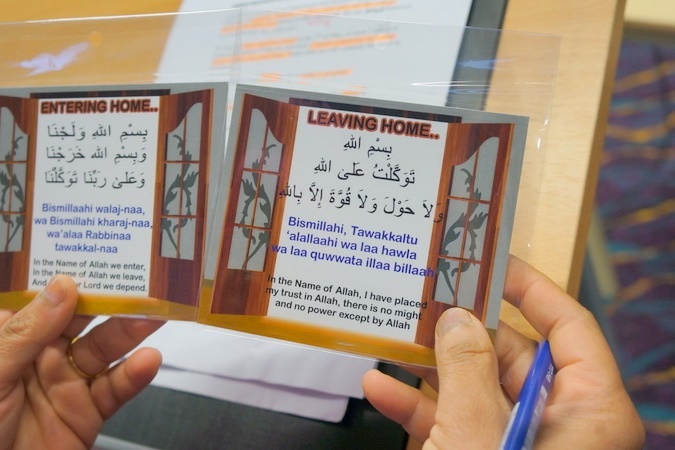 ENTERING HOME..
بِسْمِ اللهِ وَلَجْنَا
وَبِسْمِ اللهِ خَرَجْنَا
وَعَلىٰ رَبِّنَا تَوَكَّلْنَا
Bismillaahi walaj-naa,
wa Bismillahi kharaj-naa,
wa'alaa Rabbinaa
tawakkal-naa
In the Name of Allah we enter,
In the Name of Allah we leave,
And Lord we depend.
LEAVING HOME..
بِسْمِ اللهِ
تَوَكَّلْتُ عَلىٰ اللهِ
وَلاَ حَوْلَ وَلاَ قُوَّةَ إِلاَّ بِاللهِ
Bismillahi, Tawakkaltu
'alallaahi wa laa hawla
wa laa quwwata illaa billaah
In the Name of Allah, I have placed
my trust in Allah, there is no might
and no power except by Allah